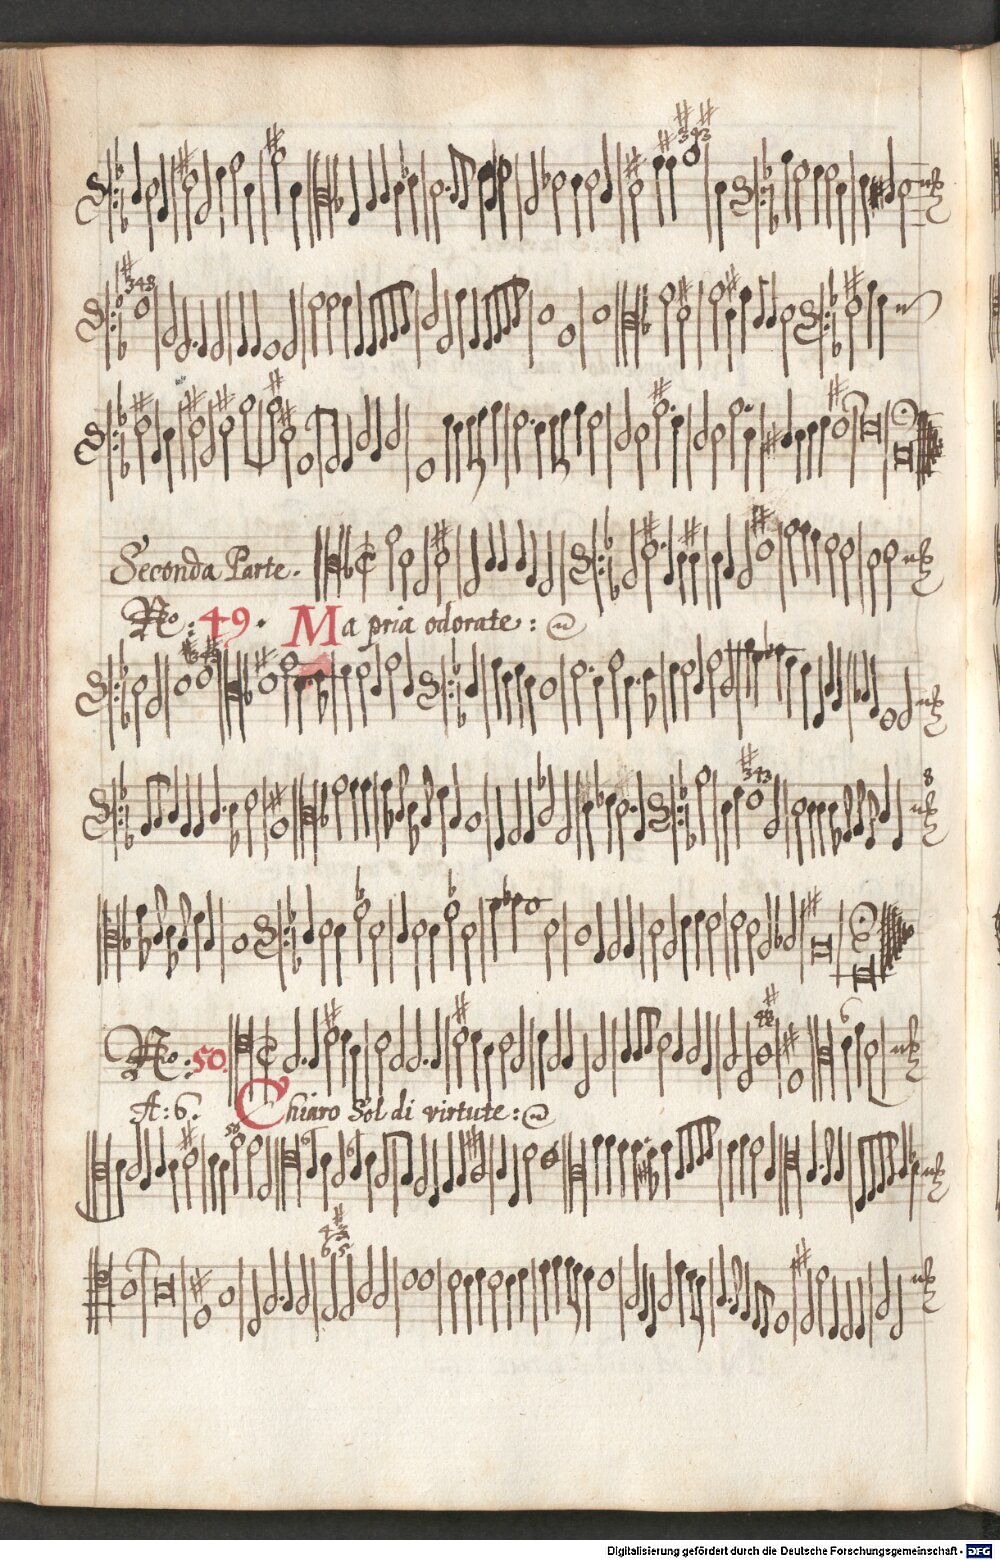 343
343
Seconda Parte.
No: 49. Ma pria odorate:
343
8
No: 50.
6
A: 6. Chiaro Sol di virtute:
4 3
6 5
Digitalisierung gefördert durch die Deutsche Forschungsgemeinschaft - DFG